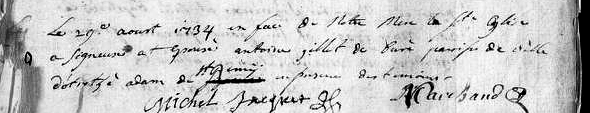 Le 29e aoust 1734 en face de Notre Mere la Ste Eglise
a Sogneuse at Epousé antoine gillet de Buré paroisse de ville
adam de St Remij en presence des temoins
Michel Jacquet Marchand